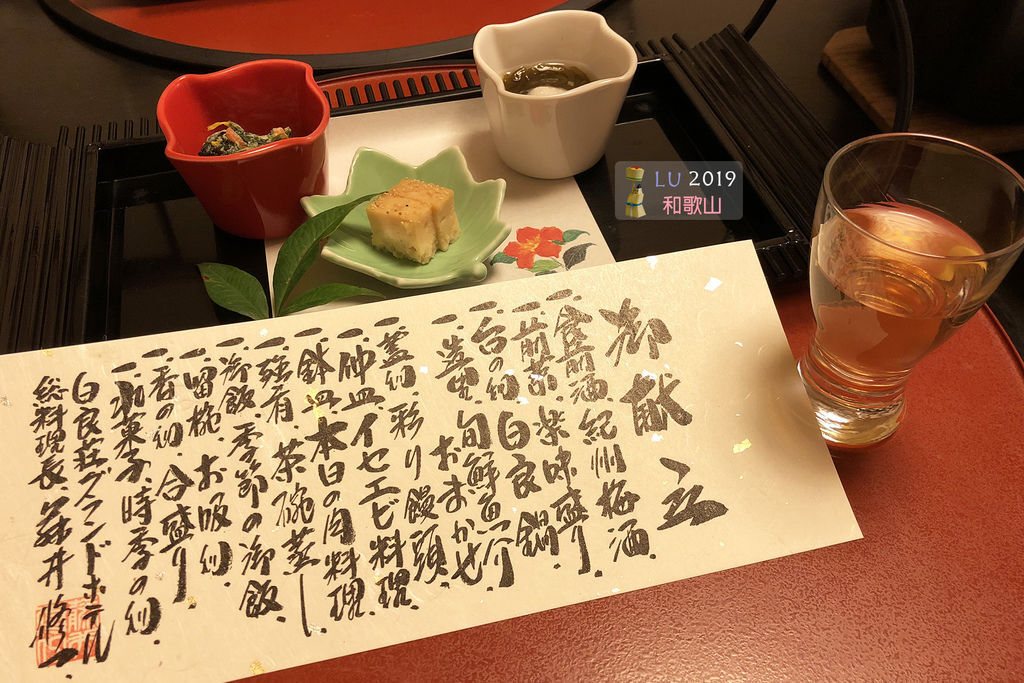 御献立
一 食前酒 紀州梅酒
一 前菜 楽味盛り
一 台の物 白良鍋
一 造里 旬鮮魚介
おまかせ
一 蓋物 彩り饅頭
一 中皿 イセエビ料理
一 鉢皿 本日の肉料理
一 強肴 茶碗蒸し
一 御飯 季節の御飯
一 留椀 お吸物
一 香の物 合盛り
一 水菓子 時季の物
白良荘グランドホテル
総料理長
LU 2019
和歌山